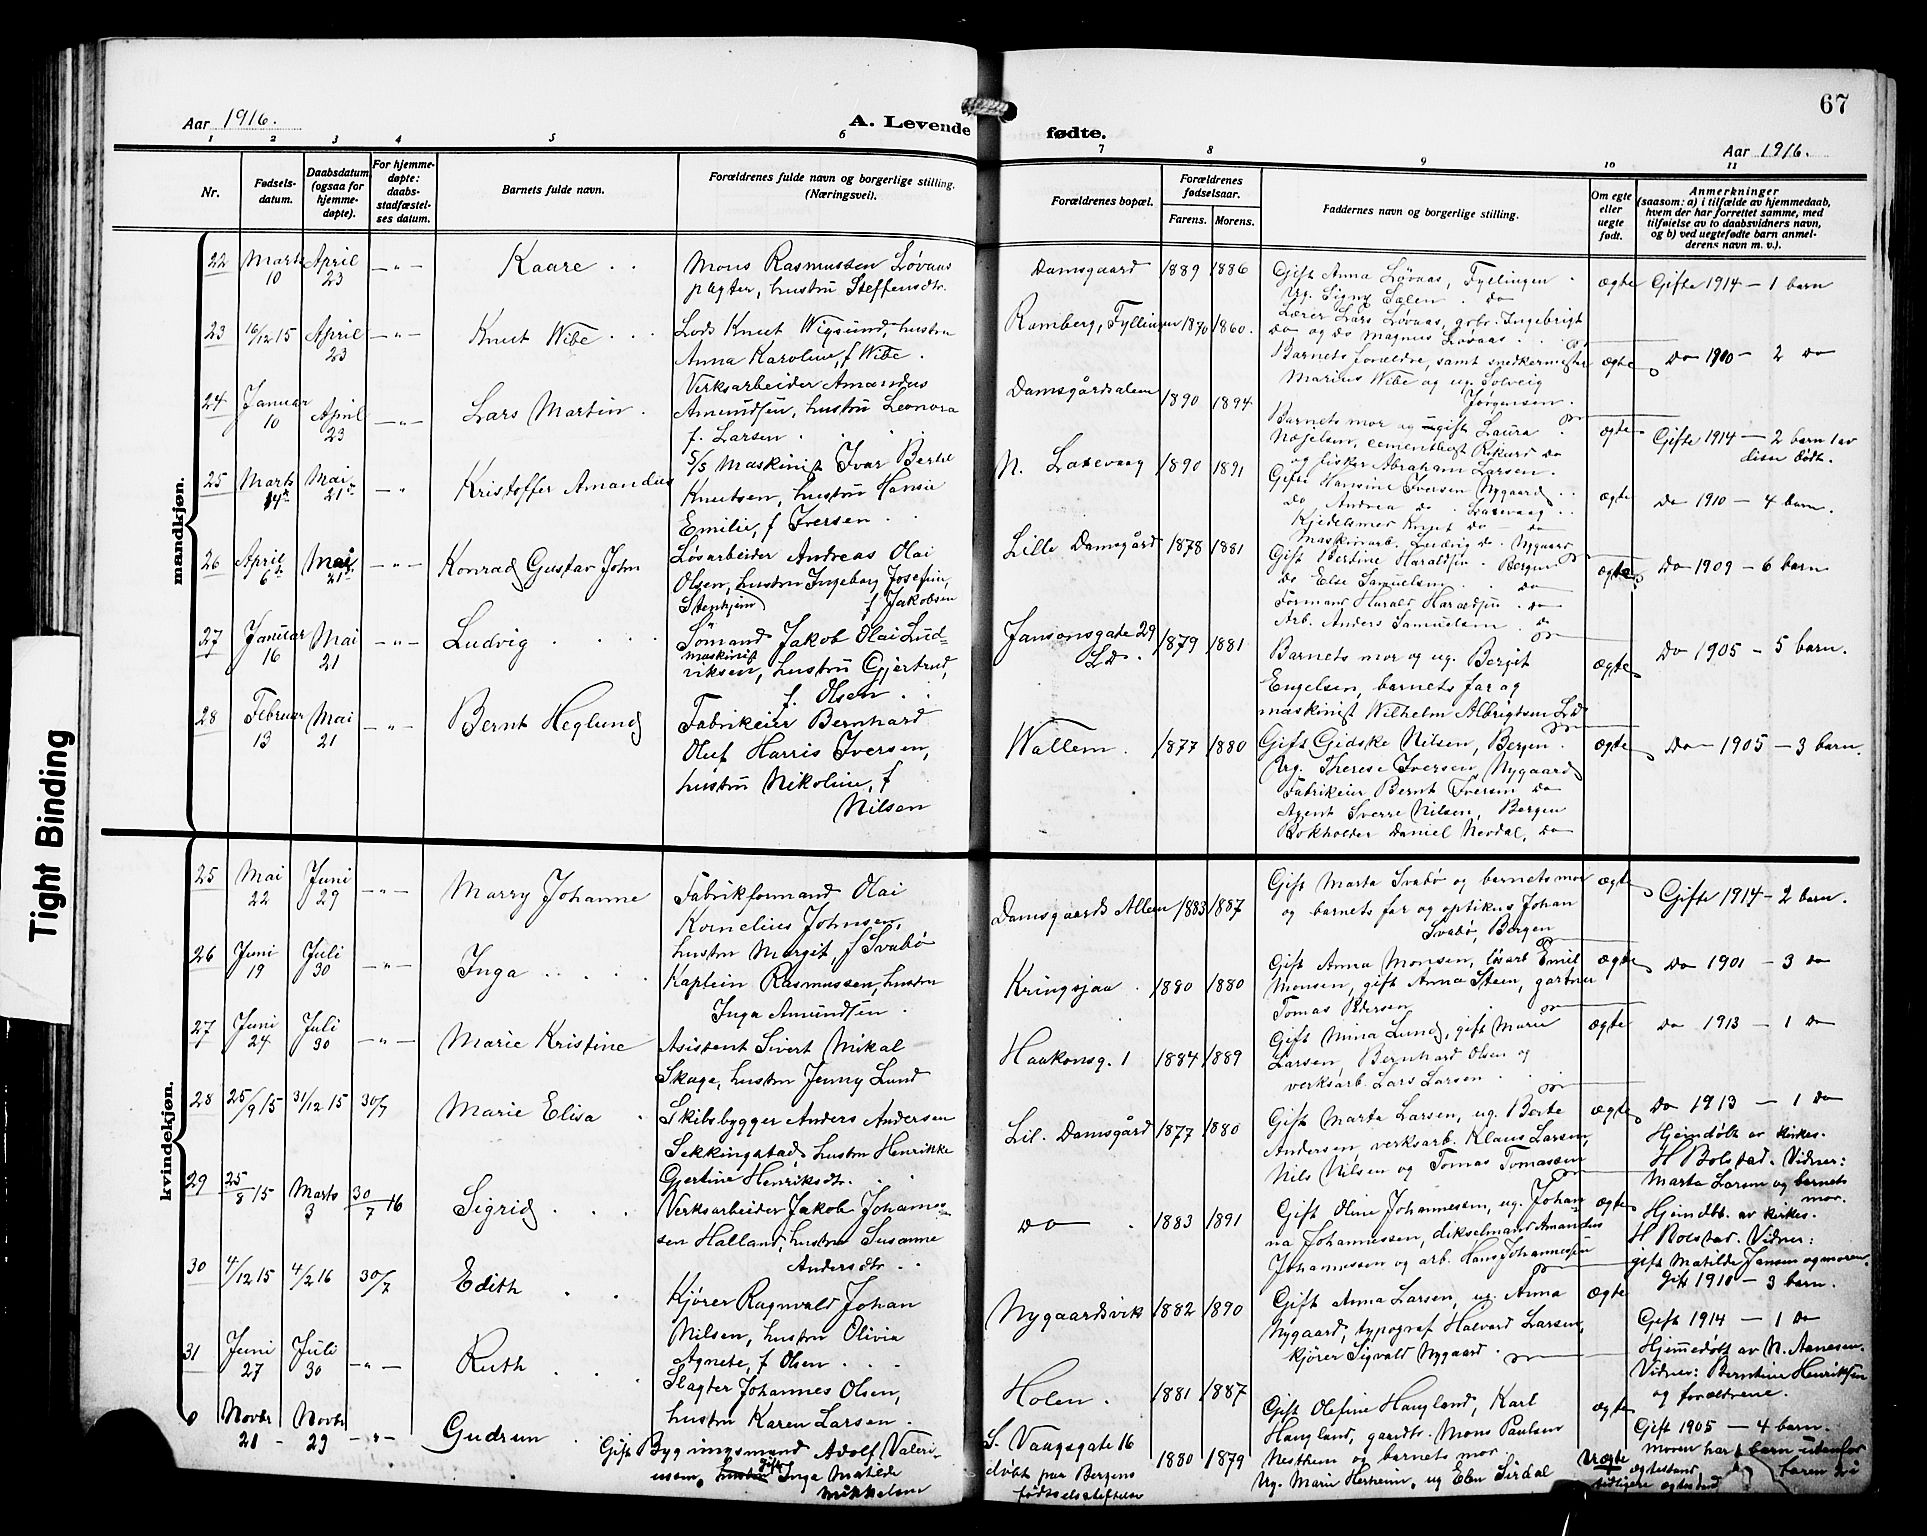 Aar 1916.
A. Levende fødte.
67
Aar 1916.
1 2 3 4 5 6 7 8 9 10 11
Nr.
Fødsels-
datum.
Daabsdatum
(ogsaa for
hjemme-
døpte).
For hjemme-
døpte:
daabs-
stadfæstel-
ses datum.
Barnets fulde navn.
Forældrenes fulde navn og borgerlige stilling.
(Næringsvei).
Forældrenes bopæl.
Forældrenes
fødselsaar.
Farens. Morens.
Faddernes navn og borgerlige stilling.
Om egte
eller
uegte
født.
Anmerkninger
(saasom: a) i tilfælde av hjemmedaab,
hvem der har forrettet samme, med
tilføielse av to daabsvidners navn,
og b) ved uegtefødte barn anmel-
derens navn m. v.).
Tight Binding
mandkjøn.
22 Marts 10 April 23 - " - Kaare . .
Mons Rasmussen Løvaas
pagter, hustru Steffensdtr.
Damsgaard 1889 1886
Gift Anna Løvaas, Fyllingen
Ug. Signy Sælen . do
Lærer Lars Løvaas, gbr. Ingebrigt
do og do Magnus Løvaas . .
ægte Gifte 1914 - 1 barn
23 16/12 15 April 23 - " - Knut Wibe . . .
Lods Knut Wigsund, hustru
Anna Karoline, f Wibe .
Ramberg, Fyllingen 1870 1860.
Barnets forældre, samt snedkermester
Marius Wibe og ug. Solveig
Jørgensen.
ægte Do 1900 - 2 do
24 Januar 10 April 23 - " - Lars Martin .
Verksarbeider Amandus
Amundsen, hustru Leonora
f. Larsen . .
Damsgårdsalem 1890 1894
Barnets mor og gift Laura
cementstøpt Rikard do
og fisker Abraham Larsen.
ægte Gifte 1914 - 2 barn 1 av
disse dødt.
25 Marts 14de Mai 21 - " - Kristoffer Amandus
5/5 Maskinist Ivar Berhe
Knutsen, hustru Hansie
Emilie, f Iversen . .
N. Laxevaag 1890 1891
Gifte Hansine Iversen Nygaard . .
do Andrea do . Laxevaag . .
Kjedelsmed Knut do - do
Maskinarb. Ludvig do . Nygaard
ægte Do 1910 - 4 barn.
26 April 6 Mai 21 - " - Konrad Gustav John
Løsarbeider Andreas Olai
Olsen, hustru Ingeborg Josefine
Stenhjem f Jakobsen
Lille Damsgård 1878 1881
Gift Bertine Haraldsen - Bergen
do Else Samuelsen . do
Formand Harald Haraldsen . do
Arb. Anders Samuelsen . do
ægte Do 1909 - 6 barn
27 Januar 16 Mai 21 - " - Ludvig . . . .
Sømand Jakob Olai Lud-
maskinist
viksen, hustru Gjertrud,
f. Olsen . .
Jansonsgate 29
Ld. 1879 1881
Barnets mor og ug. Bergit
Engelsen, barnets far og
maskinist Wilhelm Albrigtsen Ld
ægte Do 1905 - 5 barn.
28 Februar 13 Mai 21 - " - Bernt Heglund
Fabrikeier Bernhard
Oluf Harris Iversen,
hustru Nikoline, f
Nilsen
Wallem . 1877 1880
Gift Gidske Nilsen, Bergen.
Ug. Therese Iversen, Nygaard
Fabrikeier Bernt Iversen do
Agent Sverre Nilsen, Bergen
Bokholder Daniel Nevdal, do
ægte Do 1905 - 3 barn.
kvindekjøn.
25 Mai 22 Juni 29 - " - Marry Johanne
Fabrikformand Olai
Kornelius Johnsen,
hustru Margit, f Svabø
Damsgaards Allem 1883 1887
Gift Marta Svabø og barnets mor
og barnets far og optikus Johan
Svabø, Bergen
ægte Gifte 1914 - 2 barn.
26 Juni 19 Juli 30 - " - Inga . . . .
Kaptein Rasmussen, hustru
Inga Amundsen .
Kringsjaa . 1880 1880
Gift Anna Monsen, løsarb Emil
Monsen, gift Anna Steen, gartner
Tomas Pedersen
ægte Do 1901 - 3 do
27 Juni 24 Juli 30 - " - Marie Kristine
Asistent Sivert Mikal
Skage, hustru Jenny Lund
Haakonsg. 1 1884 1889
Gift Mina Lund, gift Marie
Larsen, Bernhard Olsen og
verksarb. Lars Larsen . .
ægte Do 1913 - 1 do
28 25/9 15 31/12 15 30/7 Marie Elisa .
Skibsbygger Anders Andersen
Sekkingstad, hustru Henrikke
Gjertine Henriksdtr. . .
Lil. Damsgård 1877 1880
Gift Marta Larsen, ug. Berte
Andersen, verksarb. Klaus Larsen,
Nils Nilsen og Tomas Tomassen
ægte Do 1913 - 1 do
Hjemdøbt av kirkes.
H Bolstad. Vidner:
Marta Larsen og barnets
mor.
29 25/8 15 Marts 3 30/7 16 Sigrid . . .
Verksarbeider Jakob Johannes-
sen Halland, hustru Susanne
Andersdtr. . .
do . 1883 1891
Gift Oline Johannessen, ug. Johan-
na Johannessen, dikselmand Amandus
Johannessen og arb. Hans Johannessen
ægte Hjemdbt. av kirkes.
H Bolstad. Vidner:
gift Matilde Jansen og moren.
Gift 1910 - 3 barn.
30 4/12 15 4/2 16 30/7 Edith . .
Kjører Ragnvald Johan
Nilsen, hustru Olivia
Agnete, f Olsen . . .
Nygaardsvik 1882 1890
Gift Anna Larsen, ug. Anna
Nygaard, typograf Halvard Larsen,
kjører Sigvald Nygaard .
ægte Gift 1914 - 1 do
Hjemmedøbt av N. Aanesen.
Vidner: Berntine Henriksen
og forældrene.
31 Juni 27 Juli 30 - " - Ruth . . . .
Slagter Johannes Olsen,
hustru Karen Larsen .
Holen . 1881 1887
Gift Olefine Haugland, Karl
Haugland, gardbr. Mons Paulsen
Nestheim og barnets mor.
ægte Gift 1905 - 4 barn.
Novbr 21 - Novbr 29 - " - Gudrun .
Gift Bygningsmand Adolf Valeri-
ussen, hustru gift Inga Matilde
Mikkelsen
S. Vaagsgate 16
døbt paa Bergens
fødselsstiftelse
1880 1879
Ug. Marie Herheim, ug Ebn Sirdal
Uægte
moren har 1 barn utenfor
ægtestand
tidligere ægtestand